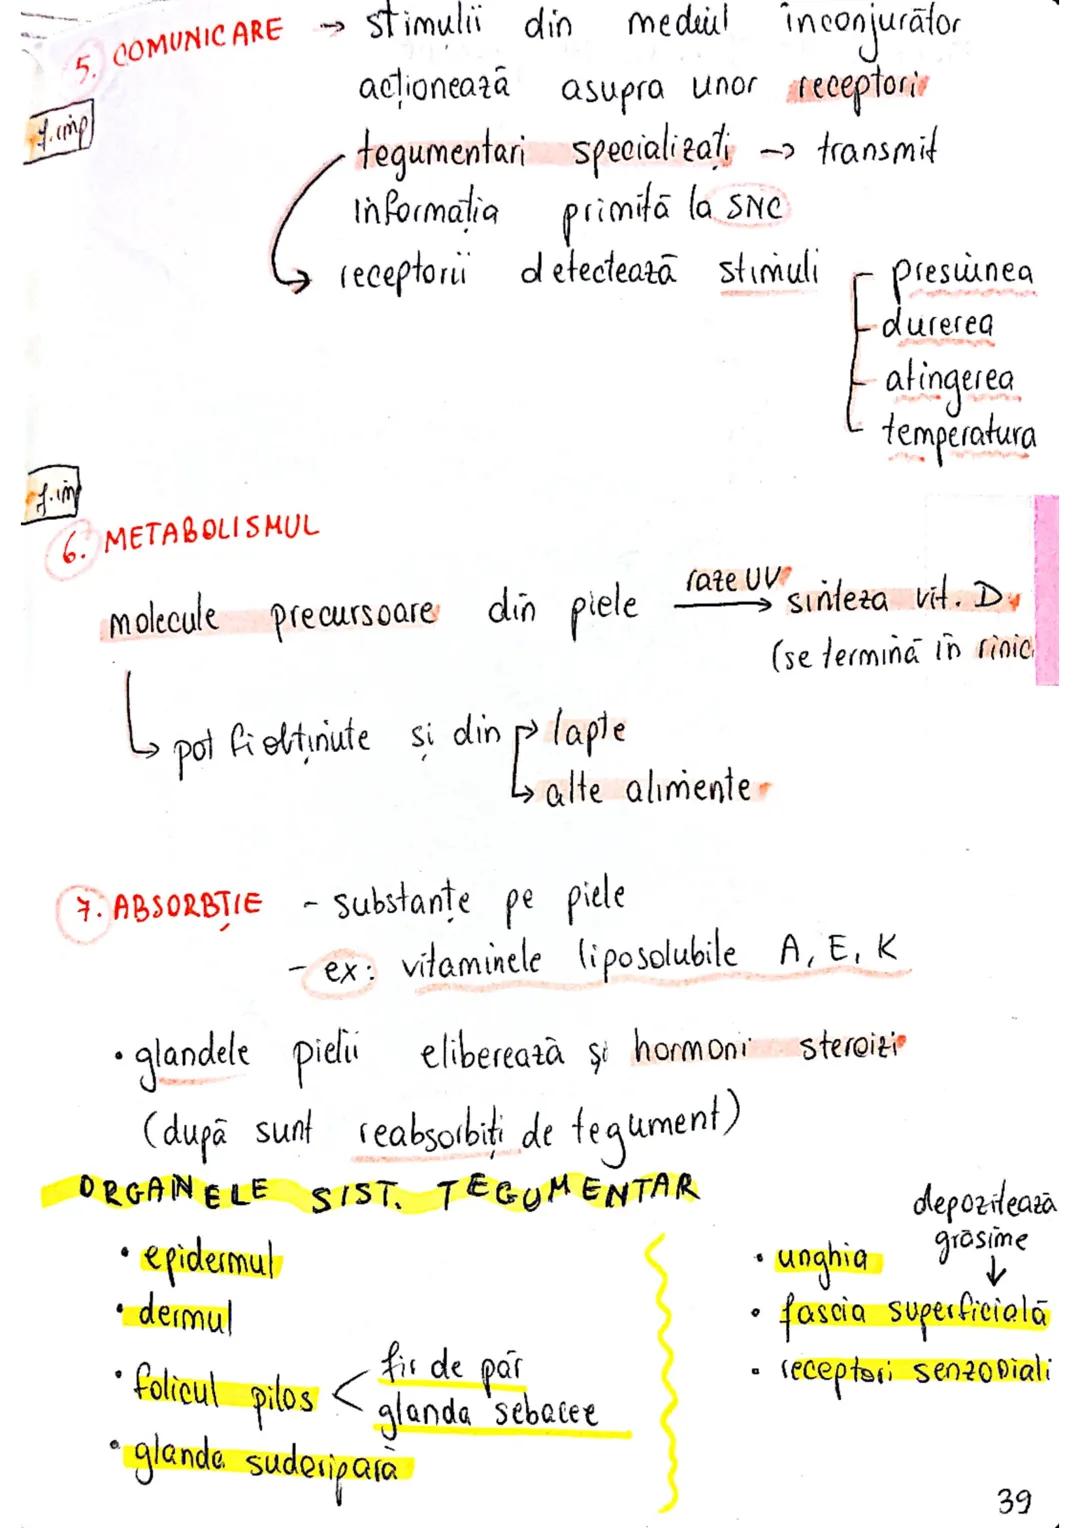 5. COMUNICARE → stimulii din mediul înconjurător
acționează asupra unor receptori
f.imp
tegumentari specializați → transmit
informația primită la SNC
receptorii detectează stimuli
presiunea
durerea
atingerea
temperatura
f.im
6. METABOLISMUL
molecule precursoare din piele raze UV → sinteza vit. D
(se termină în rinic
pot fi obținute și din → lapte
→ alte alimente
7. ABSORBȚIE - substanțe pe piele
- ex: vitaminele liposolubile A, E, K
• glandele pielii eliberează și hormoni steroizi
(după sunt reabsorbiți de tegument)
ORGANELE SIST. TEGUMENTAR
• epidermul
• dermul
• folicul pilos < fir de păr
glanda sebacee
• glanda sudoripară
depozitează
grăsime
↓
• unghia
• fascia superficială
• receptori senzoriali
39